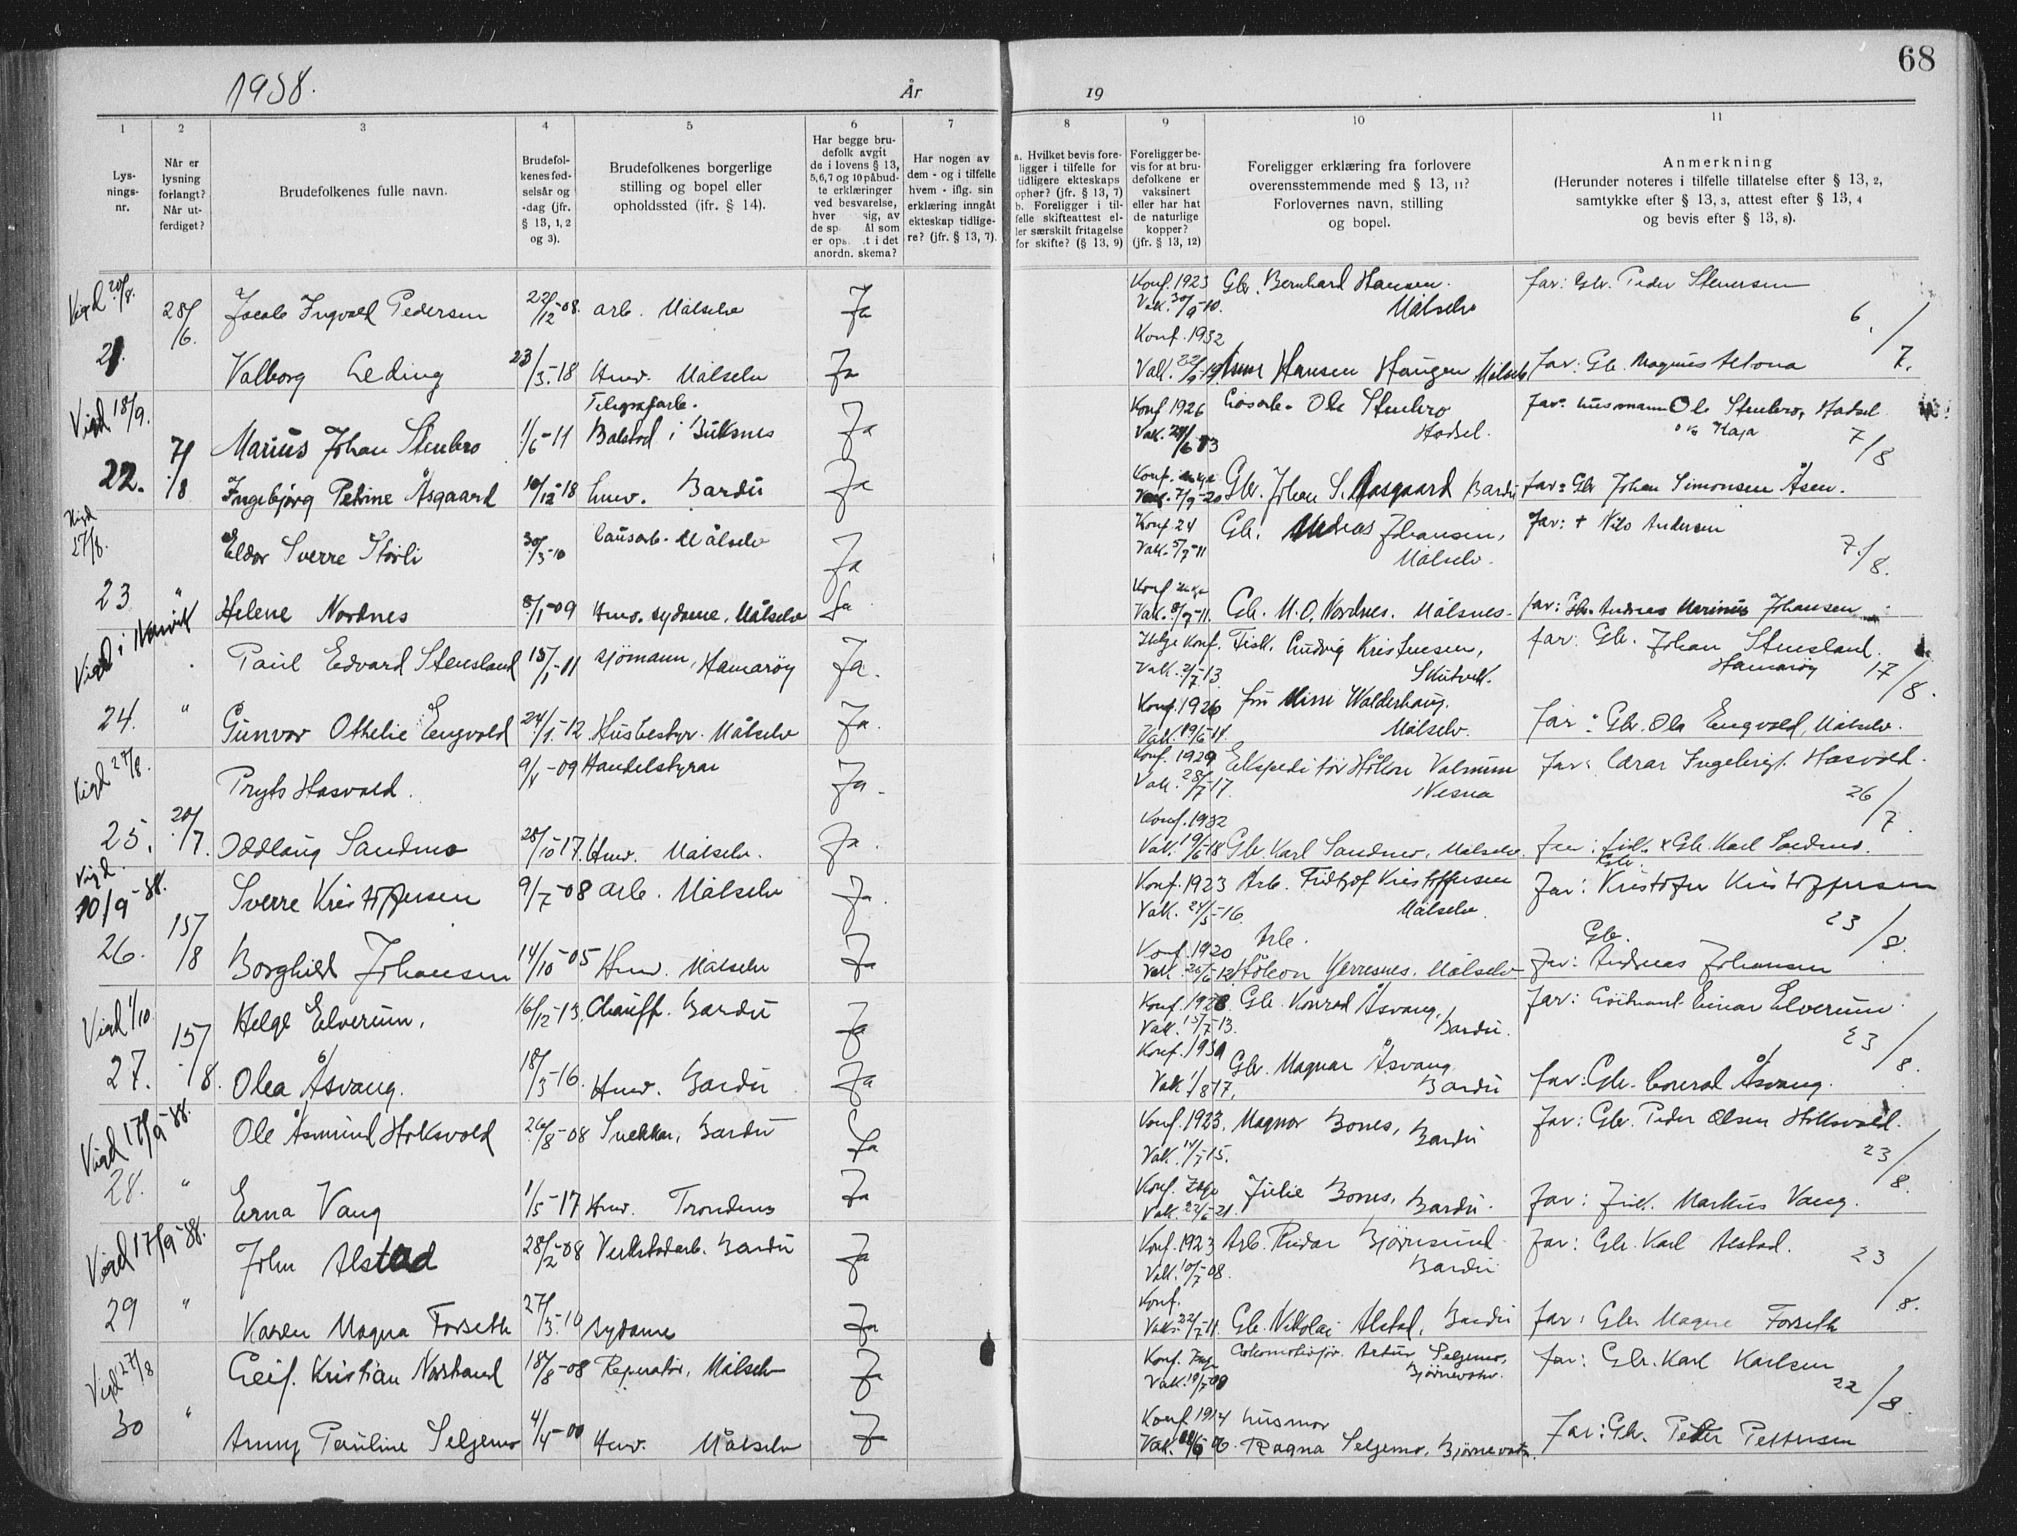 68
1938.
År
19
1
2
3
4
5
6
7
8
9
10
11
Lys-
nings-
nr.
Når er
lysning
forlangt?
Når ut-
ferdiget?
Brudefolkenes fulle navn.
Brudefol-
kenes fød-
selsår og
-dag (jfr.
§ 13, 1, 2
og 3).
Brudefolkenes borgerlige
stilling og bopel eller
opholdssted (jfr. § 14).
Har begge bru-
defolk avgit
de i lovens § 13,
5,6,7 og 10 påbud-
te erklæringer
ved besvarelse,
hver sig, av
de sp ål som
er ops t i det
anordn. skema?
Har nogen av
dem - og i tilfelle
hvem - iflg. sin
erklæring inngåt
ekteskap tidlige-
re? (jfr. § 13, 7).
a. Hvilket bevis fore-
ligger i tilfelle for
tidligere ekteskaps
ophør? (jfr. § 13, 7)
b. Foreligger i til-
felle skifteattest el-
ler særskilt fritagelse
for skifte? (§ 13, 9)
Foreligger be-
vis for at bru-
defolkene er
vaksinert
eller har hat
de naturlige
kopper?
(jfr. § 13, 12)
Foreligger erklæring fra forlovere
overensstemmende med § 13, 11?
Forlovernes navn, stilling
og bopel.
Anmerkning
(Herunder noteres i tilfelle tillatelse efter § 13, 2,
samtykke efter § 13, 3, attest efter § 13, 4
og bevis efter § 13, 8).
Vigd 20/8. 28/6. Jacob Ingvald Pedersen 22/12-08. arb. Målselv Ja Konf. 1923 Vak. 30/9-10. Gbr. Bernhard Hansen. Målselv far: Gbr. Peder Stenersen 6./7.
21. Valborg Leding 23/3-18 Hmv. Målselv Ja Konf. 1932 Hansen Haugen Målselv far: Gb. Magnus Altona
Vigd 18/9. 7/8 Marius Johan Stenbro 1/6-11 Telegrafarb. Balstad i Buksnes Ja Konf 1926 Ole Stenbro Hadsel. far: husmann Ole Stenbro, Hadsel 7/8
22. Ingebjørg Petrine Åsgaard 10/12-18 hmv. Bardu Ja Vak. 7/9-20 Gbr. Johan S. Aasgaard Bardu far: Gbr Johan Simonsen Åsen.
Vigd 27/8. Eldor Sverre Storli 30/3-10 Målselv Ja Konf 24 Gb. Andreas Johansen, Målselv. far: + Nils Andersen 7./8.
23 " Helene Nordnes 8/1-09 Hmv. sydame, Målselv Ja Gb. M. O. Nordnes. Målsnes. far: Gbr. Andreas Marinius Johansen
Vigd i Narvik Paul Edvard Stensland 15/1-11 sjömann, Hamarøy Ja. Helge Konf. Vak. 2/7-13 Fisk. Ludvig Kristensen, Skutvik. far: Gb. Johan Stensland. Hamarøy 17/8.
24. " Gunvor Othelie Engvold 24/1-12 Husbestyr. Målselv Ja. Konf. 1926 fru Walderhaug. Målselv. far: Gbr. Ola Engvold, Målselv.
Vigd 27/8. 20/7. Pryts Hasvold. 9/8-09 Handelstyrar Ja. Konf. 1929 Vak. 28/7-17. Ekspeditør Håkon Valmum Nesna far: Lærar Ingebrigt Hasvold. 26/7.
25. Oddlaug Sandmo 28/10-17. Hmv. Målselv. Ja. Konf. 1932 Vak. 19/6-18 Gbr. Karl Sandmo, Målselv. far: Gb. Karl Sandmo.
Vigd. 10/9-38. 15/8 Sverre Kristoffersen 9/7-08 arb. Målselv Ja. Konf. 1923 Vak. 24/5-16. Arb. Fridtjof Kristoffersen Målselv. far: Gbr. Kristofer Kristoffersen 23/8.
26. Borghild Johansen 14/10-05 Hmv. Målselv Ja Konf. 1920 Arb. Håkon Målselv far: Gbr. Andreas Johansen
Vigd 1/10. 15/8. Helge Elverum. 16/12-13. Chauff. Bardu Ja Konf. 1928 Vak. 15/7-13. Gb. Konrad Åsvang, Bardu. far: Einar Elverum. 23/8.
27. Olea Åsvang. 18/3-16. Hmv. Bardu Ja Vak. 1/8 17, Gbr. Magnar Åsvang Bardu far: Gbr. Conrad Åsvang.
Vigd 17/9-38. Ole Åsmund Holksvold 26/8-08 Snekker, Bardu Ja Konf. 1923. Magnor Bones, Bardu far: Gbr. Peder Olsen Holksvold. 23/8.
28. " Erna Vang 1/5-17 Hmv. Trondenes Ja Julie Bones, Bardu. far: Fisk. Markus Vang.
Vigd 17/9-38. John Alstad 28/2-08 Verkstadarb. Bardu Ja Konf. 1923 Vak. 10/7-08. Arb. Reidar Bjørnsund. Bardu far: Gbr. Karl Alstad. 23/8.
29 " Karen Magna Forseth 27/3-10 sydame Ja Konf. Vak. 22/7-11. Gb. Nikolai Alstad, Bardu far: Gbr Magne Forseth
Vigd 27/8 Leif. Kristian Norstrand 18/8-08 Reperatør, Målselv Ja Lokomotivfør. Artur Seljemo, Bjørnevatn. far: Gbr. Karl Karlsen 22/8.
30 " Anny Pauline Seljemo 4/4-00 Hmv. Målselv Ja Konf 1914 husmor Ragna Seljemo, Bjørnevatn. far: Gbr. Peder Pettersen